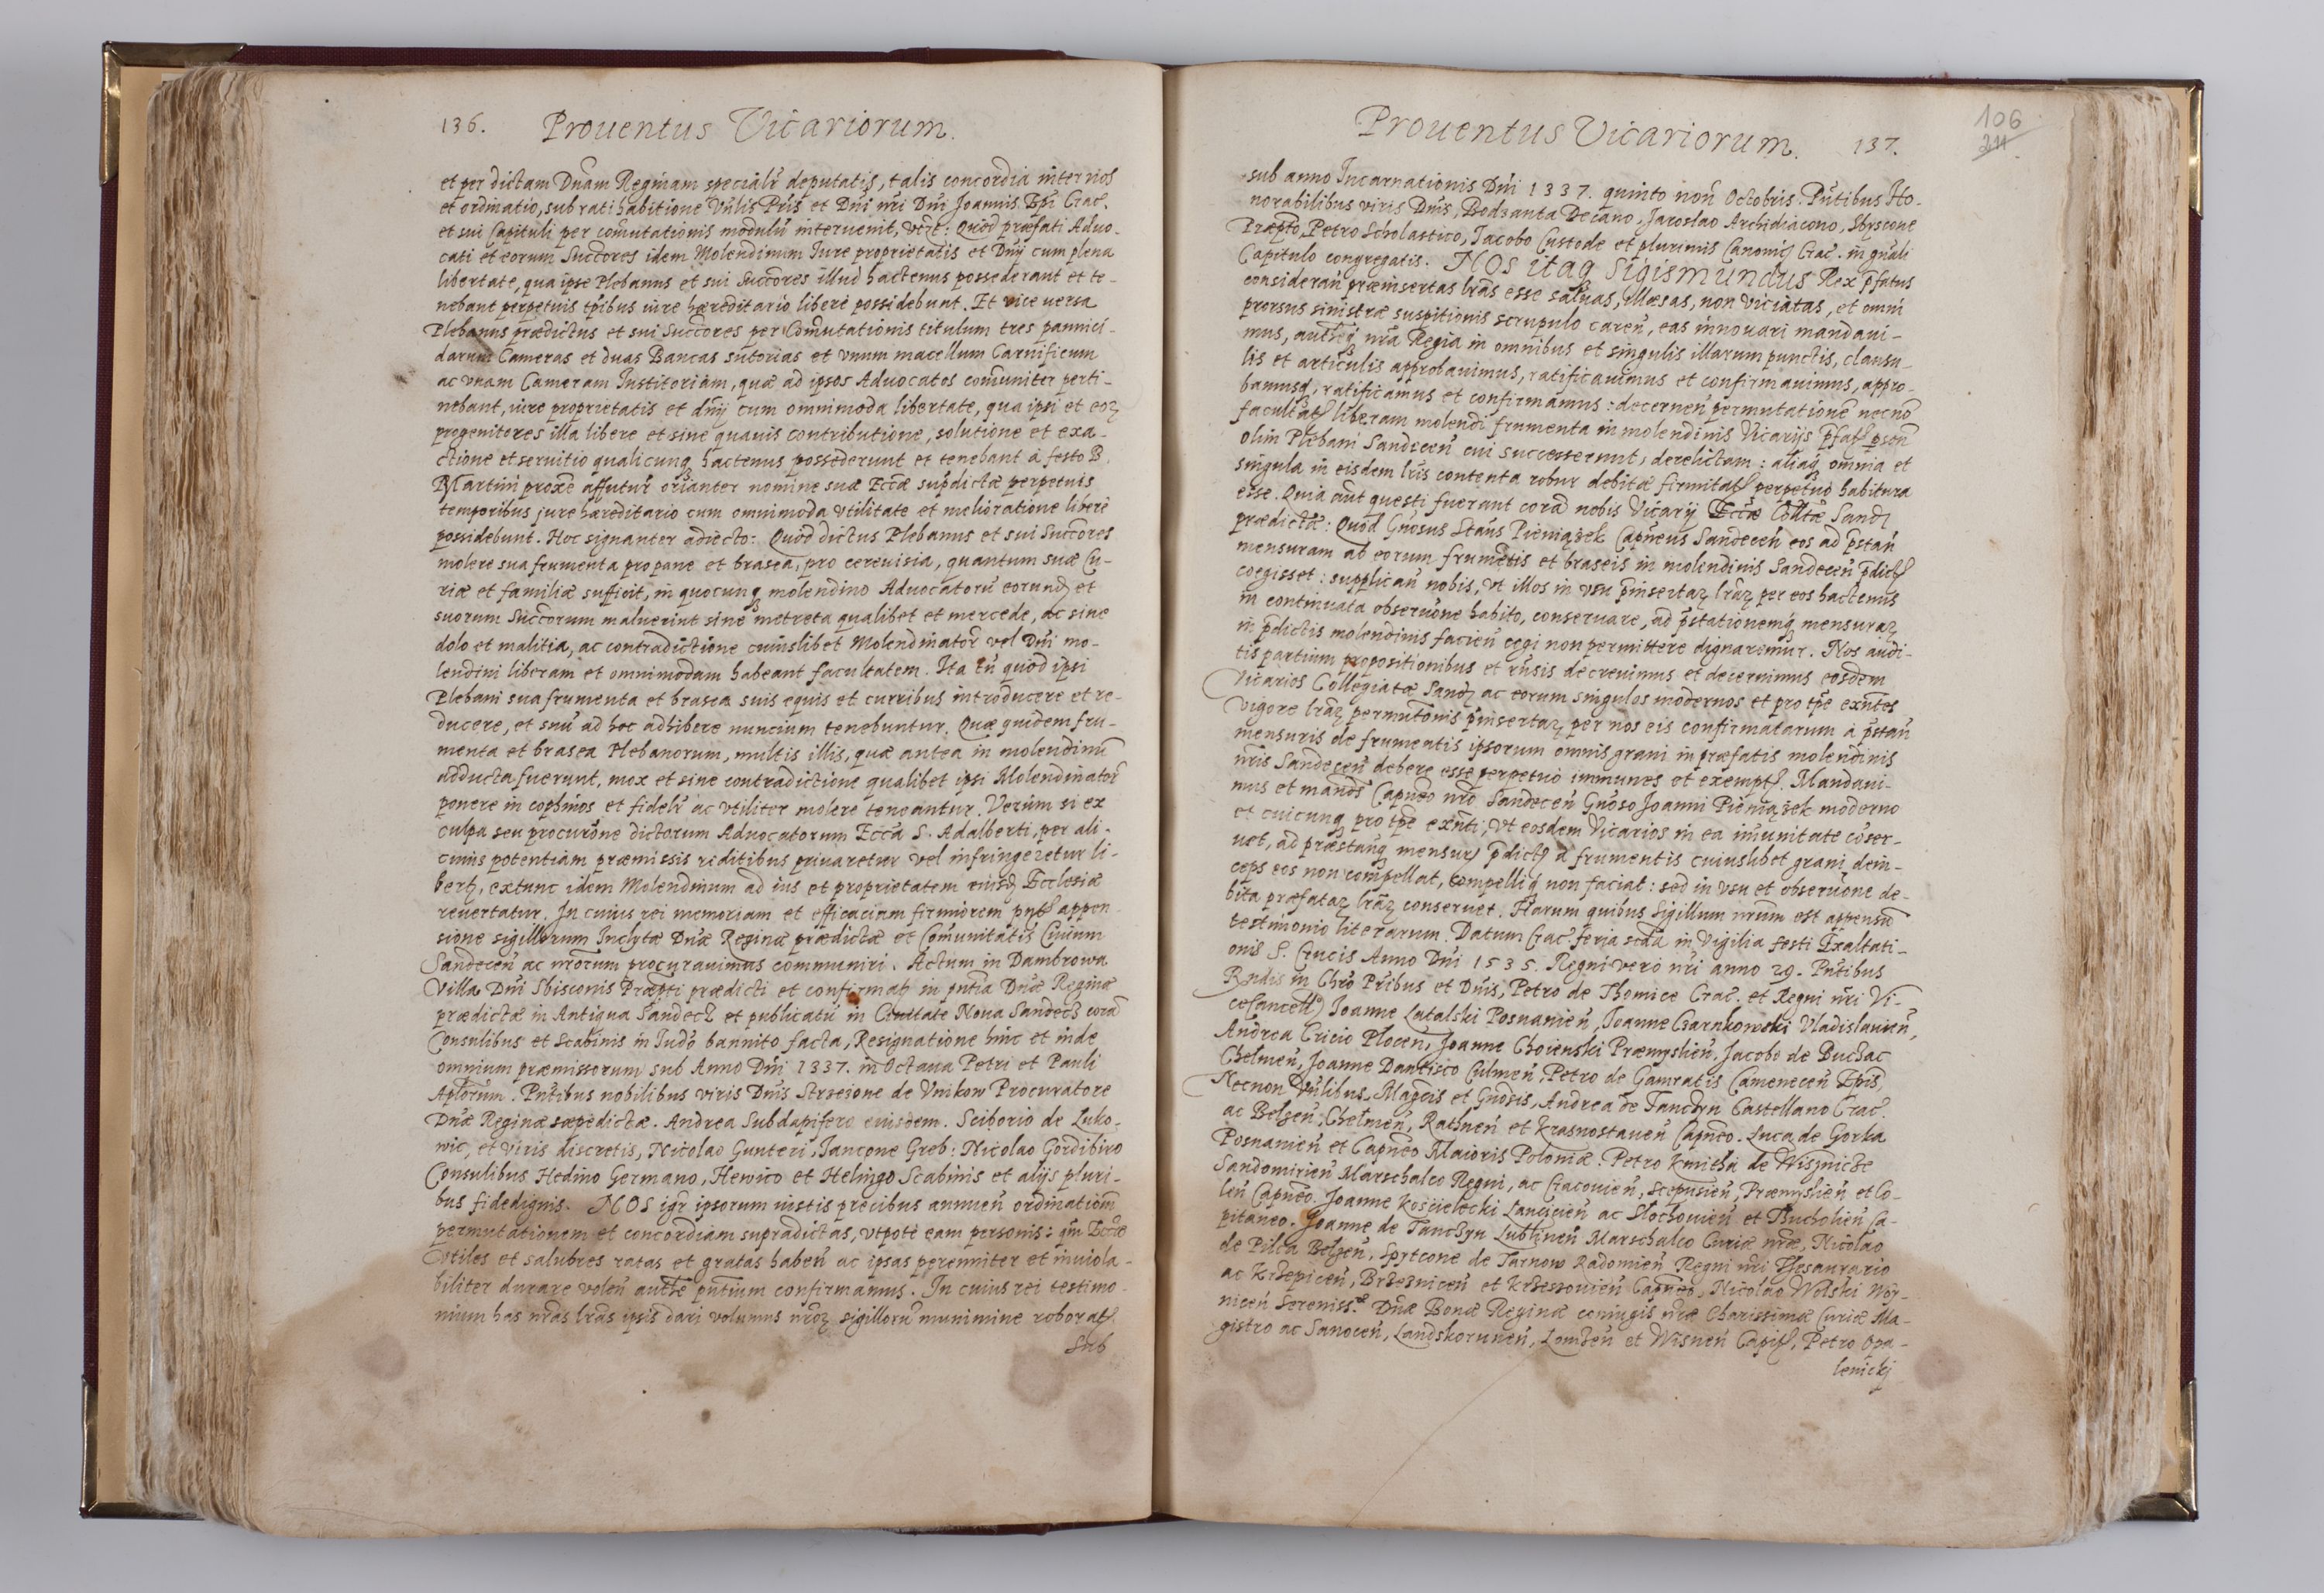 136. Prouentus Vicariorum.
et per dictam Dnam Reginam specialr deputatis, talis concordia inter nos
et ordinatio, sub rati habitione Vnlis Pris et Dni nri Dni Joannis Epi Crac.
et sui Capituli per comutationis modulu interuenit, vdzt: Quod præfati Aduo-
cati et eorum Succores idem Molendinum Iure proprietatis et Dnij cum plena
libertate, qua ipse Plebanus et sui Succores illud hactenus possederant et te-
nebant perpetuis tpibus iure hæreditario liberè possidebunt. Et vice uersa
Plebanus prædictus et sui Succores per Comutationis titulum tres pannici-
darum Cameras et duas Bancas sutorias et vnum macellum Carnificum
ac vnam Cameram Institoriam, quæ ad ipsos Aduocatos comuniter perti-
nebant, iure proprietatis et dnij cum omnimoda libertate, qua ipsi et eoꝝ
progenitores illa libere et sine quauis contributione, solutione et exa-
ctione et seruitio qualicunq hactenus possederunt et tenebant à festo B.
Martini proxe affuturr nomine suæ Eccæ supdictæ perpetuis
temporibus jure hæreditario cum omnimoda vtilitate et melioratione liberè
possidebunt. Hoc signanter adiecto: Quod dictus Plebanus et sui Succores
molere sua frumenta pro pane et brasea, pro cereuisia, quantum suæ Cu-
riæ et familiæ sufficit, in quocunq molendino Aduocatoru eorund et
suorum Succorum maluerint sine metreta qualibet et mercede, ac sine
dolo et malitia, ac contradictione cuiuslibet Molendinator vel Dni mo-
lendini liberam et omnimodam habeant facultatem. Ita tn quod ipsi
Plebani sua frumenta et brasea suis equis et curribus introducere et re-
ducere, et snu ad hoc adhibere nuncium tenebuntur. Quæ quidem fru-
menta et brasea Plebanorum, multis illis, quæ antea in molendinu
adducta fuerunt, mox et sine contradictione qualibet ipsi Molendinator
ponere in cophinos et fidelr ac vtiliter molere teneantur. Verùm si ex
culpa seu procurone dictorum Aduocatorum Ecca S. Adalberti, per ali-
cuius potentiam præmissis reditibus priuaretur vel infringeretur li-
bert, extunc idem Molendinum ad ius et proprietatem eiusd Ecclesiæ
reuertatur. In cuius rei memoriam et efficaciam firmiorem pnt appen
sione sigillorum Inclytæ Dnæ Reginæ prædictæ et Comunitatis Ciuium
Sandecen ac nrorum procurauimus communiri. Actum in Dambrowa
Villa Dni Sbisconis Præpti prædicti et confirmat in pntia Dnæ Reginæ
prædictæ in Antiqua Sandecz et publicatu in Ciuitate Noua Sandecz cora
Consulibus et Scabinis in Judo bannito facta, Resignatione hinc et inde
omnium præmissorum sub Anno Dni 1337. in Octaua Petri et Pauli
Aplorum. Pntibus nobilibus viris Dnis Strzezone de Vnikow Procuratore
Dnæ Reginæ sæpedictæ. Andrea Subdapifero eiusdem. Sciborio de Luko-
wic, et viris discretis, Nicolao Gunteri, Jancone Greb: Nicolao Gordibiro
Consulibus Hedino Germano, Hewico et Helingo Scabinis et alijs pluri-
bus fidedignis. NOS igr ipsorum iustis precibus annuen ordination
permutationem et concordiam supradictas, vtpotè eam personis: qm Eccæ
vtiles et salubres ratas et gratas haben ac ipsas perenniter et inuiola-
biliter durare volen authe pntium confirmamus. In cuius rei testimo-
nium has nras lras ipsis dari volumus nroꝝ sigilloru munimine roborat.
Sub
Prouentus Vicariorum. 137.
106
211
sub anno Incarnationis Dni 1337. quinto non Octobris. Pntibus Ho-
norabilibus viris Dnis, Bodzanta Decano, Jaroslao Archidiacono, Sbyscone
Præpto, Petro Scholastico, Jacobo Custode et plurimis Canonicis Crac. in gnali
Capitulo congregatis. NOS itaq Sigismundus Rex pfatus
consideran præinsertas lras esse saluas, illæsas, non viciatas, et omni
prorsus sinistræ suspitionis scrupulo caren, eas innouari mandaui-
mus, autheq nra Regia in omnibus et singulis illarum punctis, clausu-
lis et articulis approbauimus, ratificauimus et confirmauimus, appro-
bamusq, ratificamus et confirmamus: decernen permutatione necno
facultat liberam molendi frumenta in molendinis Vicarijs pfat pson
olim Plebani Sandecen cui successerunt, derelictam: aliaq omnia et
singula in eisdem lris contenta robur debitæ firmitat perpetuò habitura
esse. Quia aut questi fuerant cora nobis Vicarij Eccæ Colltæ Sand
prædictæ: Quod Gnosus Stans Pieniążek Capneus Sandecen eos ad pstan
mensuram ab eorum frumetis et braseis in molendinis Sandecen pdict
coegisset: supplican nobis, vt illos in vsu pinsertaꝝ lraꝝ per eos hactenus
in continuata obseruone habito, conseruare, ad pstationemq mensuraꝝ
in pdictis molendinis facien cogi non permittere dignaremur. Nos audi-
tis partium propositionibus et rusis decreuimus et decernimus eosdem
Vicarios Collegiatæ Sand ac eorum singulos modernos et pro tpe exntes
vigore lraꝝ permutonis pinsertaꝝ per nos eis confirmatarum à pstan
mensuris de frumentis ipsorum omnis grani in præfatis molendinis
nris Sandecen debere esse perpetuò immunes et exempt. Mandaui-
mus et mands Capneo nro Sandecen Gnoso Joanni Pieniążek moderno
et cuicunq pro tpe exnti, vt eosdem Vicarios in ea imunitate coser-
uet, ad præstanq mensur pdict à frumentis cuiuslibet grani dein-
ceps eos non compellat, compelliq non faciat: sed in vsu et obseruone de-
bita præfataꝝ lraꝝ conseruet. Harum quibus Sigillum nrum est appensu
testimonio literarum. Datum Crac. feria scda in Vigilia festi Exaltati-
onis S. Crucis Anno Dni 1535. Regni verò nri anno 29. Pntibus
Rndis in Chro Pribus et Dnis, Petro de Thomice Crac. et Regni nri Vi-
ceCancell Joanne Latalski Posnanien, Joanne Czarnkowski Vladislauien,
Andrea Cricio Plocen, Joanne Choienski Præmyslien. Jacobo de Buczac
Chelmen, Joanne Dantisco Culmen, Petro de Gamratis Camenecen Epis,
Necnon Vnlibus, Magcis et Gnosis, Andrea de Tanczyn Castellano Crac.
ac Belzen, Chelmen, Rathnen et Krasnostauen Capneo. Luca de Gorka
Posnanien et Capneo Maioris Poloniæ. Petro Kmitha de Wisznicze
Sandomirien Marschalco Regni, ac Cracouien, Scepusien, Præmyslien et Co-
len Capneo. Joanne Kościelecki Lancicien ac Slochouien et Tucholien Ca-
pitaneo. Joanne de Tanczyn Lublinen Marschalco Curiæ nræ, Nicolao
de Pilca Belzen, Spytcone de Tarnow Radomien Regni nri Thesaurario
ac Krzepicen, Brzeznicen et Krzessouien Capneo, Nicolao Wolski Woy-
nicen Sereniss. Dnæ Bonæ Reginæ coniugis nræ Charissimæ Curiæ Ma-
gistro ac Sanocen, Landskorunen, Lomzen et Wisnen Capit, Petro Opa-
lenicki